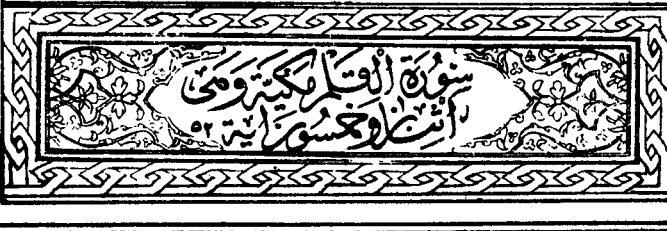 سورة القلم مكية وهي
اثنان وخمسون اية ٥٢